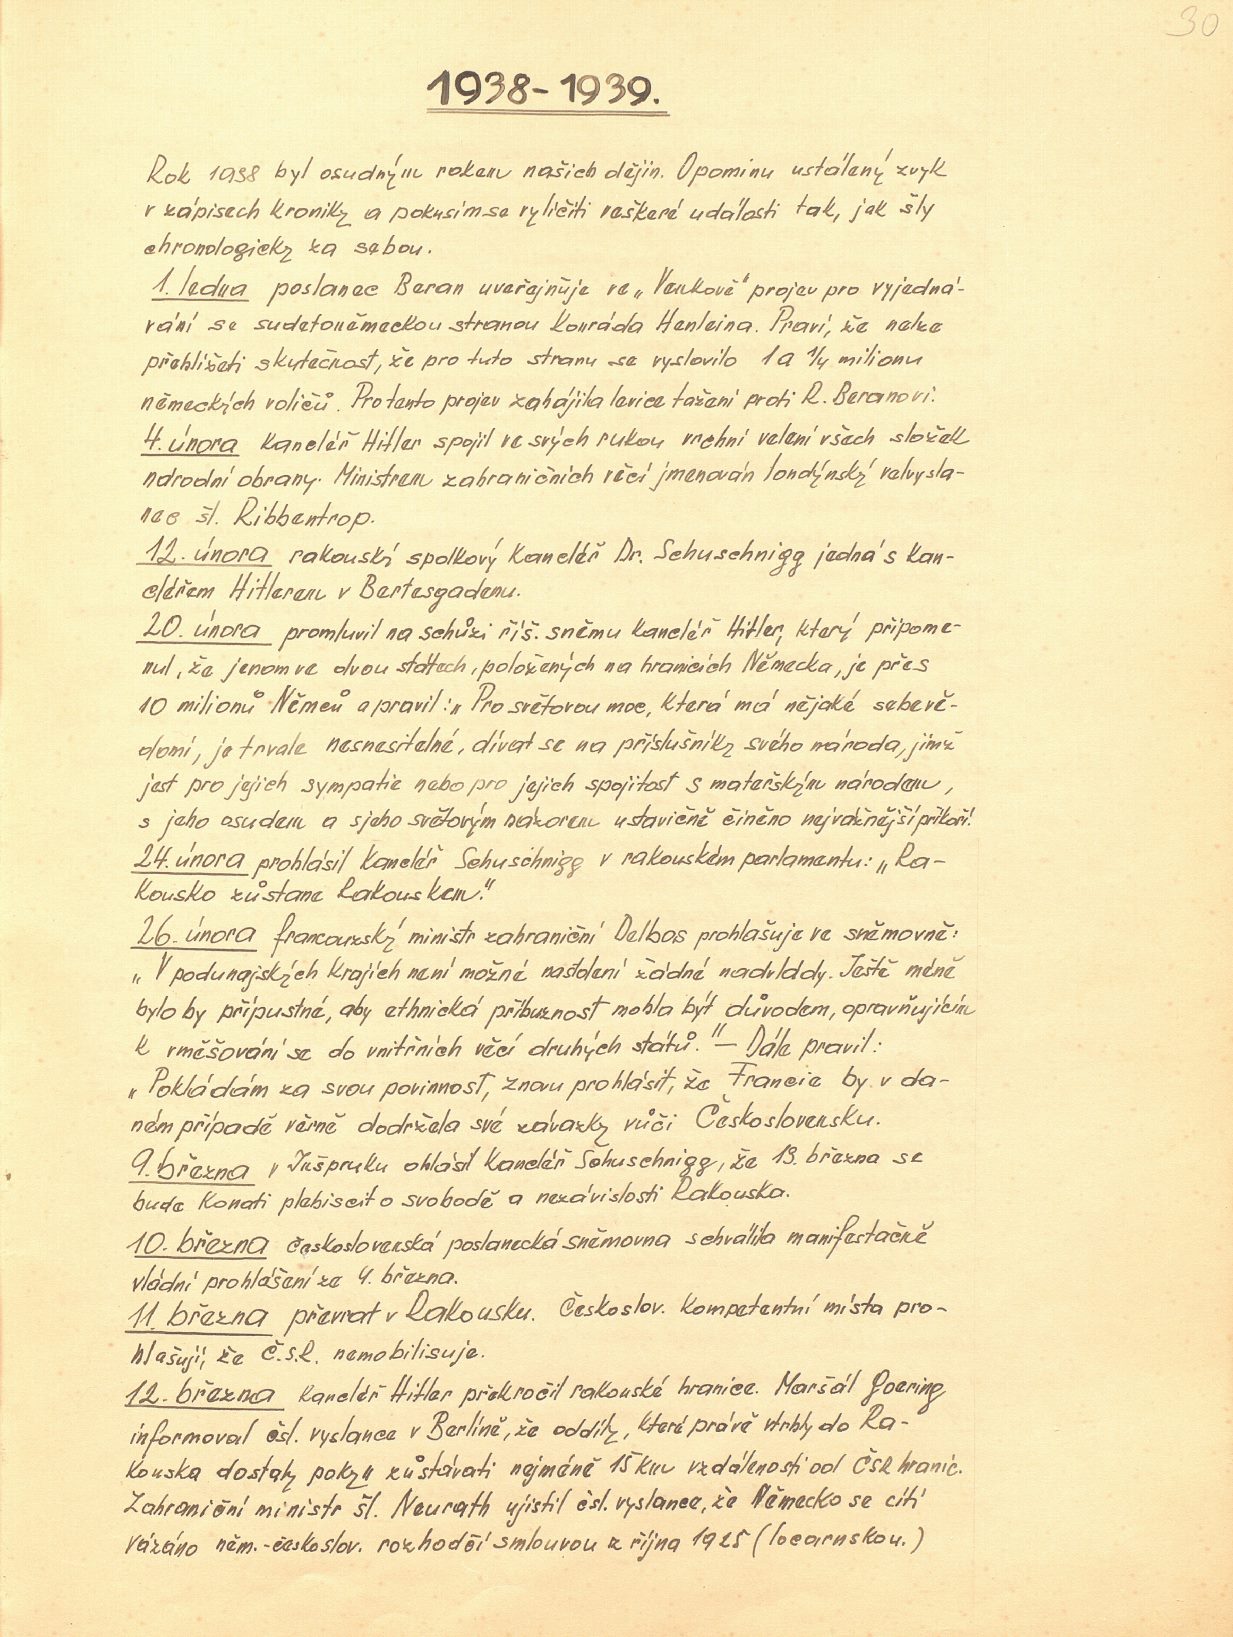 30
1938-1939.
Rok 1938 byl osudným rokem našich dějin. Opominu ustálený zvyk
v zápisech kroniky a pokusím se vylíčiti veškeré události tak, jak šly
chronologicky za sebou.
1. ledna poslanec Beran uveřejňuje ve „Venkově" projev pro vyjedná-
vání se sudetoněmeckou stranou Konráda Henleina. Praví, že nelze
přehlížeti skutečnost, že pro tuto stranu se vyslovilo 1 a 1/4 milionu
německých voličů. Pro tento projev zahájila levice tažení proti R. Beranovi.
4. února kancléř Hitler spojil ve svých rukou vrchní velení všech složek
národní obrany. Ministrem zahraničních věcí jmenován londýnský velvysla-
nec šl. Ribbentrop.
12. února rakouský spolkový kancléř Dr. Schuschnigg jedná s kan-
cléřem Hitlerem v Bertesgadenu.
20. února promluvil na schůzi říš. sněmu kancléř Hitler, který připome-
nul, že jenom ve dvou státech, položených na hranicích Německa, je přes
10 milionů Němců a pravil: „Pro světovou moc, která má nějaké sebevě-
domí, je trvale nesnesitelné, dívat se na příslušníky svého národa, jimž
jest pro jejich sympatie nebo pro jejich spojitost s mateřským národem,
s jeho osudem a s jeho světovým názorem ustavičně činěno nejvážnější příkoří.
24. února prohlásil kancléř Schuschnigg v rakouském parlamentu: „Ra-
kousko zůstane Rakouskem."
26. února francouzský ministr zahraniční Delbos prohlašuje ve sněmovně:
„V podunajských krajích není možné nastolení žádné nadvlády. Ještě méně
bylo by přípustné, aby ethnická příbuznost mohla být důvodem, opravňujícím
k vměšování se do vnitřních věcí druhých států." — Dále pravil:
„Pokládám za svou povinnost, znovu prohlásit, že Francie by v da-
ném případě věrně dodržela své závazky vůči Československu.
9. března v Inšpruku ohlásil kancléř Schuschnigg, že 13. března se
bude konati plebiscit o svobodě a nezávislosti Rakouska.
10. března československá poslanecká sněmovna schválila manifestačně
vládní prohlášení ze 4. března.
11. března převrat v Rakousku. Českoslov. kompetentní místa pro-
hlašují, že Č.S.R. nemobilisuje.
12. března kancléř Hitler překročil rakouské hranice. Maršál Goering
informoval čsl. vyslance v Berlíně, že oddíly, které právě vtrhly do Ra-
kouska dostaly pokyn zůstávati nejméně 15 km vzdálenosti od ČSR hranic.
Zahraniční ministr šl. Neurath ujistil čsl. vyslance, že Německo se cítí
vázáno něm.-českoslov. rozhodčí smlouvou z října 1925 (locarnskou.)